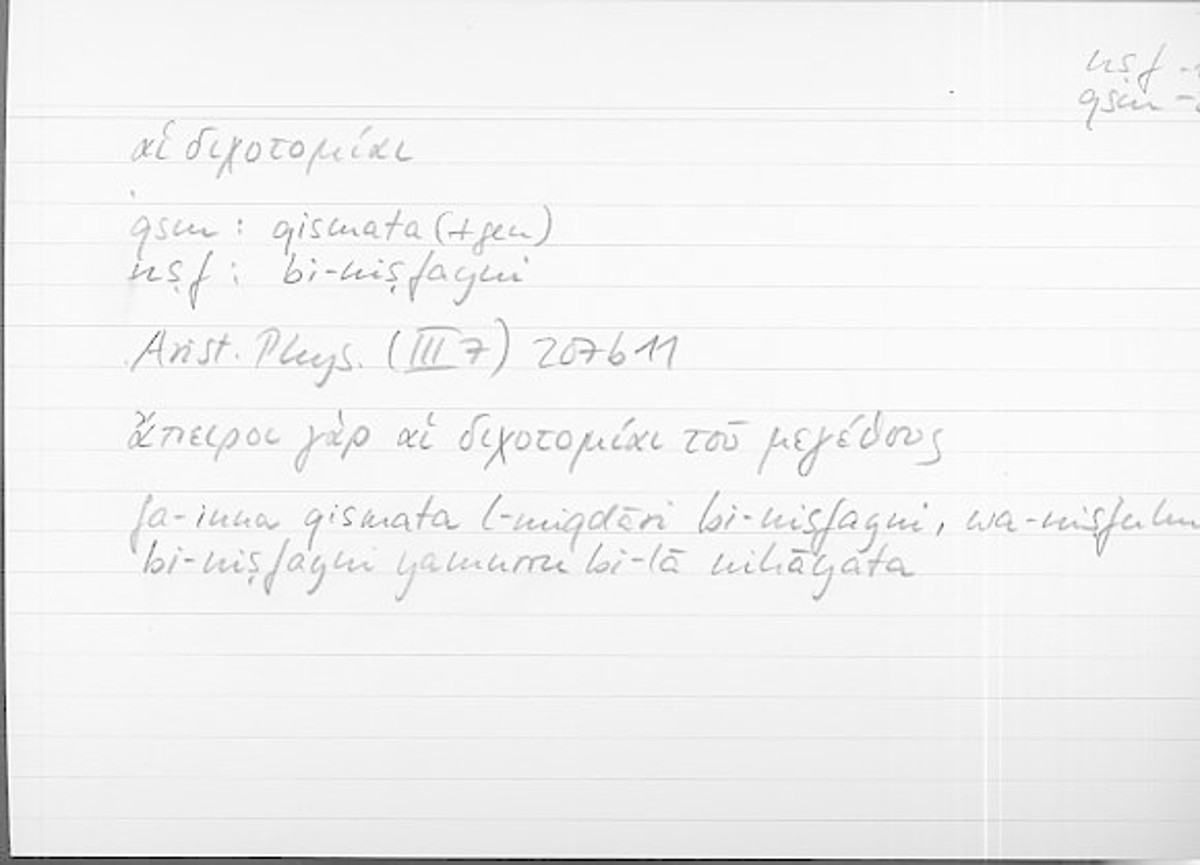 nṣf -
qsm -
αἱ διχοτομίαι
qsm : qismata (+gen)
nṣf : bi-niṣfayni
Arist. Phys. (III 7) 207b11
ἄπειροι γὰρ αἱ διχοτομίαι τοῦ μεγέθους
fa-inna qismata l-miqdāri bi-niṣfayni, wa-niṣfuhu
bi-niṣfayni yamurru bi-lā nihāyata